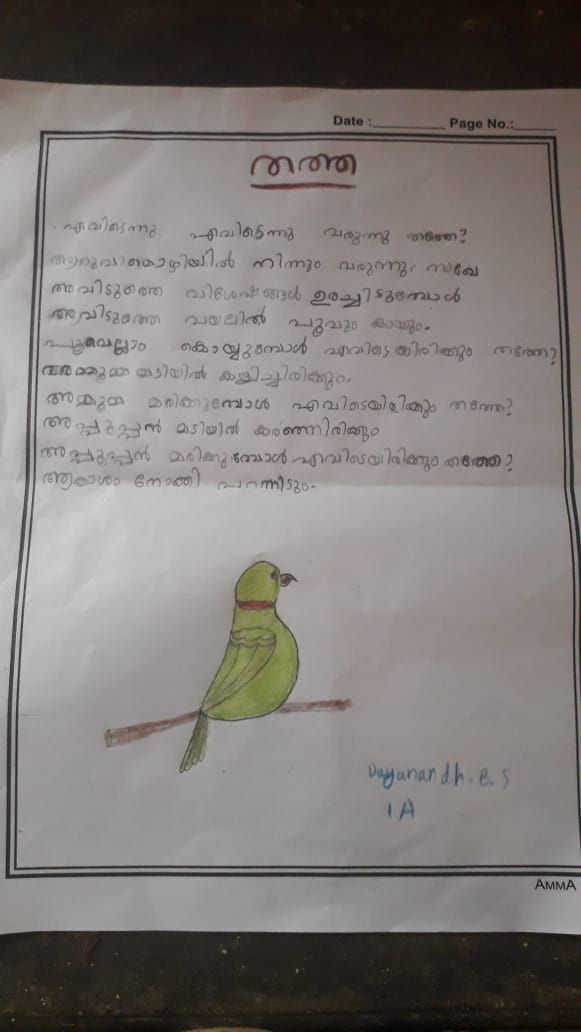 Date :________ Page No.:_____
തത്ത
എവിടെന്നു എവിടെന്നു വരുന്നു തത്തേ?
നിന്നും വരുന്നു സഖേ
അവിടുത്തെ വിശേഷങ്ങൾ ഉരച്ചിടുമ്പോൾ
അവിടുത്തെ വയലിൽ പൂവും കായും.
പൂവെല്ലാം കൊയ്യുമ്പോൾ എവിടെയിരിക്കും തത്തേ?
അമ്മൂമ്മ മടിയിൽ കളിച്ചിരിക്കും.
അമ്മൂമ്മ മരിക്കുമ്പോൾ എവിടെയിരിക്കും തത്തേ?
അപ്പൂപ്പൻ മടിയിൽ കരഞ്ഞിരിക്കും
അപ്പൂപ്പൻ മരിക്കുമ്പോൾ എവിടെയിരിക്കും തത്തേ?
ആകാശം നോക്കി പറന്നിടും.
Dayanandh. B. S
1 A
AMMA